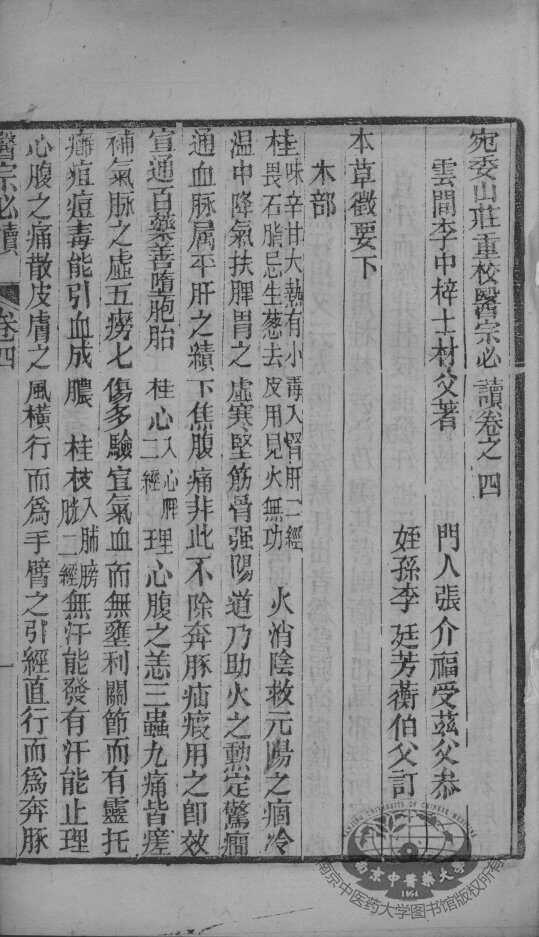 宛委山莊重校醫宗必讀卷之四
雲間李中梓士材父著　門人張介福受兹父恭
姪孫李廷芳蘅伯父訂
本草徵要下
木部
桂味辛甘大熱有小毒入腎肝二經畏石脂忌生葱去皮用見火無功　火消陰救元陽之痼冷
温中降氣扶脾胃之虛寒堅筋骨强陽道乃助火之勲定驚癎
通血脉属平肝之績下焦腹痛非此不除奔豚疝瘕用之即效
宣通百藥善墮胞胎　桂心入心脾二經理心腹之恙三蟲九痛皆瘥
補氣脉之虛五癆七傷多驗宣氣血而無壅利關節而有靈托
癰疽痘毒能引血成膿　桂枝入肺膀胱二經無汗能發有汗能止理
心腹之痛散皮膚之風横行而為手臂之引經直行而為奔豚
醫宗必讀　卷四　一
南京中醫藥大學
NANJING UNIVERSITY OF CHINESE MEDICINE
1954
南京中医药大学图书馆版权所有